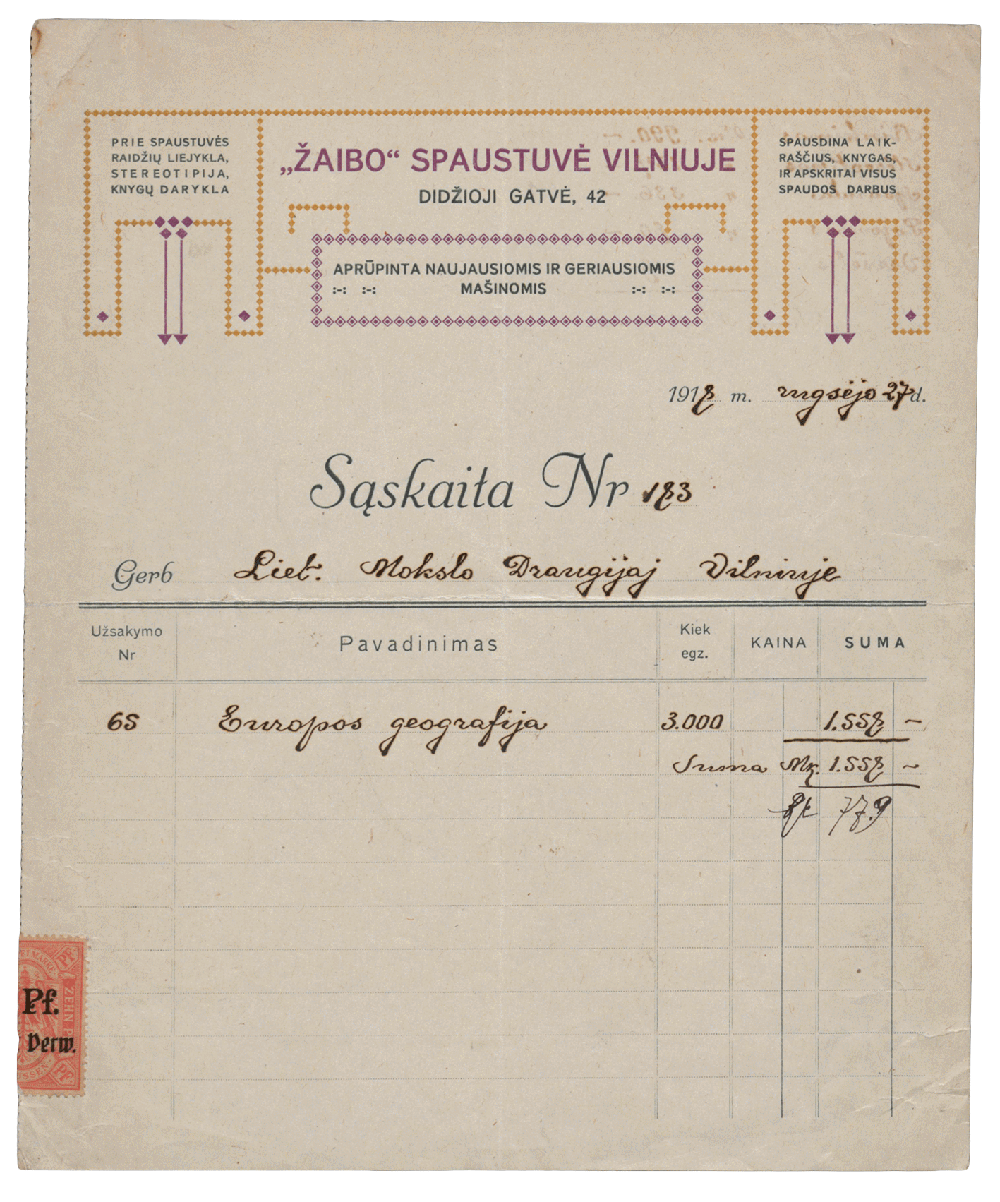 PRIE SPAUSTUVĖS
RAIDŽIŲ LIEJYKLA,
STEREOTIPIJA,
KNYGŲ DARYKLA
„ŽAIBO“ SPAUSTUVĖ VILNIUJE
DIDŽIOJI GATVĖ, 42
SPAUSDINA LAIK-
RAŠČIUS, KNYGAS,
IR APSKRITAI VISUS
SPAUDOS DARBUS
APRŪPINTA NAUJAUSIOMIS IR GERIAUSIOMIS
:-: :-: MAŠINOMIS :-: :-:
1918 m. rugsėjo 27 d.
Sąskaita Nr 183
Gerb Liet. Mokslo Draugijaj Vilniuje
Užsakymo Nr Pavadinimas Kiek egz. KAINA SUMA
65 Europos geografija 3.000 1.558 —
Suma Mk. 1.558 —
779
Pf.
Verw.
ZEHN P
Pf
Pf